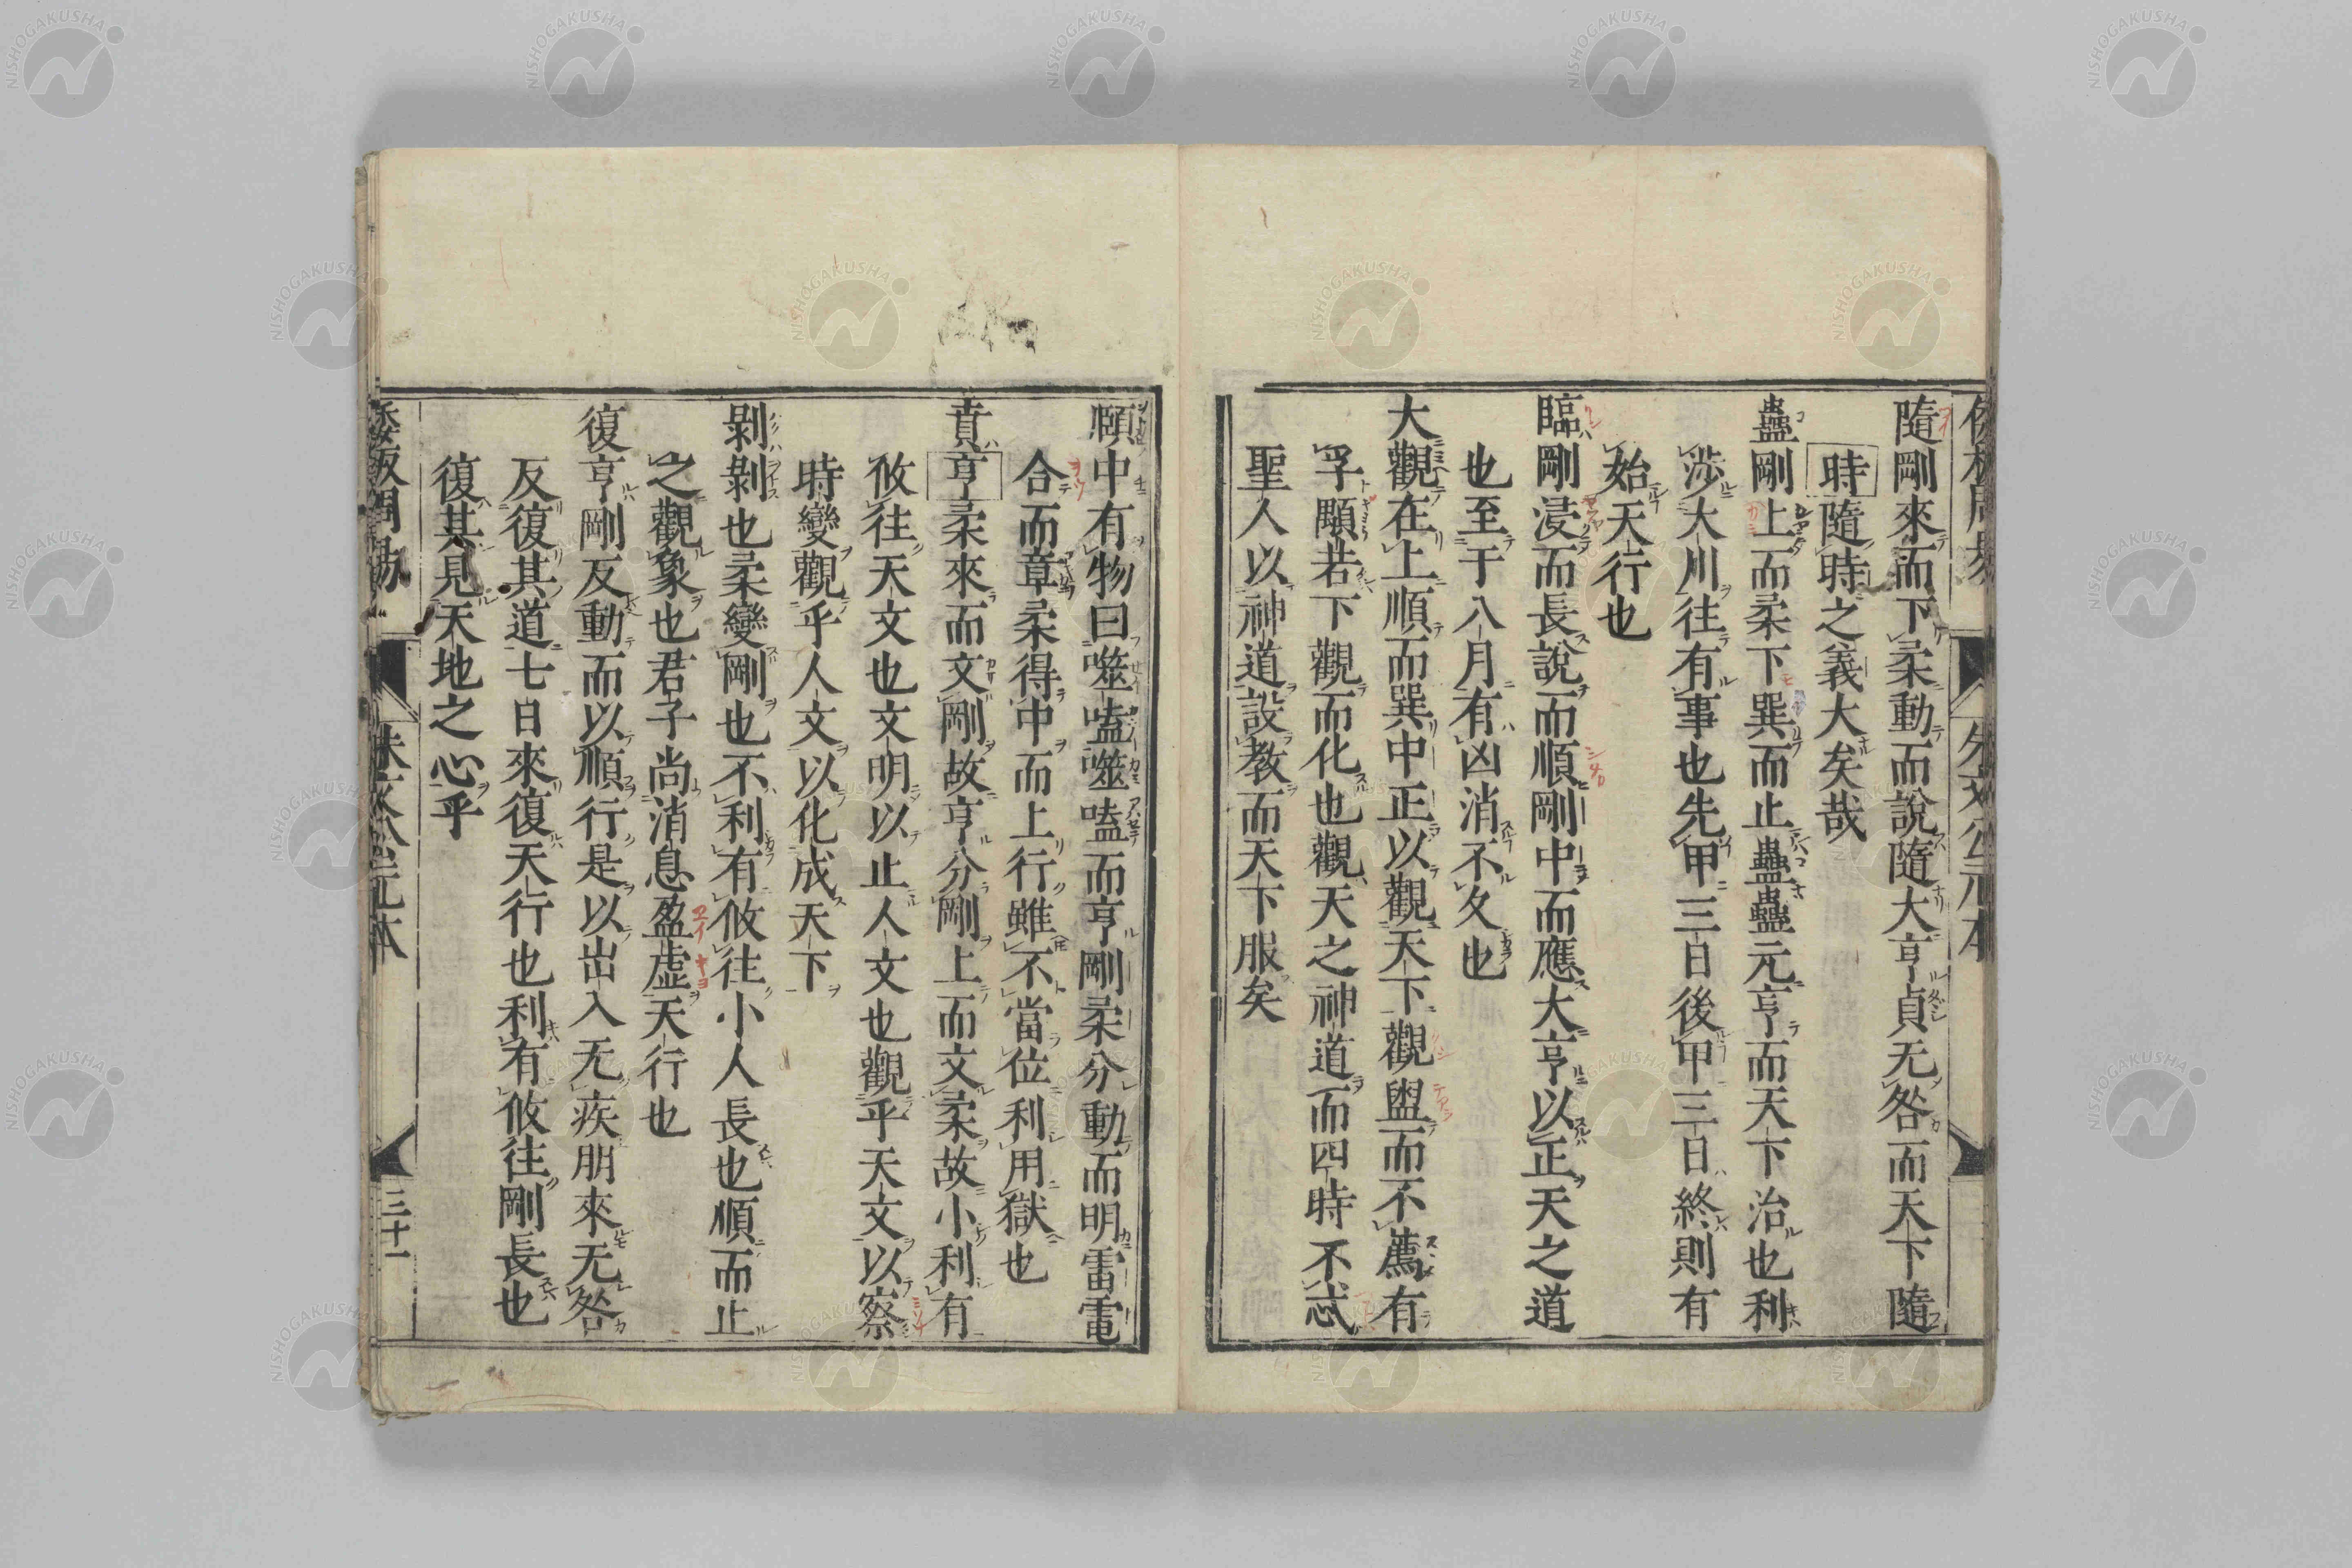 隨剛來而下柔動而說隨大亨貞无咎而天下隨
時隨時之義大矣哉
蠱剛上而柔下巽而止蠱蠱元亨而天下治也利
涉大川往有事也先甲三日後甲三日終則有
始天行也
臨剛浸而長說而順剛中而應大亨以正天之道
也至于八月有凶消不久也
大觀在上順而巽中正以觀天下觀盥而不薦有
孚顒若下觀而化也觀天之神道而四時不忒
聖人以神道設教而天下服矣
頤中有物曰噬嗑噬嗑而亨剛柔分動而明雷電
合而章柔得中而上行雖不當位利用獄也
賁亨柔來而文剛故亨分剛上而文柔故小利有
攸往天文也文明以止人文也觀乎天文以察
時變觀乎人文以化成天下
剝剝也柔變剛也不利有攸往小人長也順而止
之觀象也君子尚消息盈虛天行也
復亨剛反動而以順行是以出入无疾朋來无咎
反復其道七日來復天行也利有攸往剛長也
復其見天地之心乎
三十一
NISHOGAKUSHA